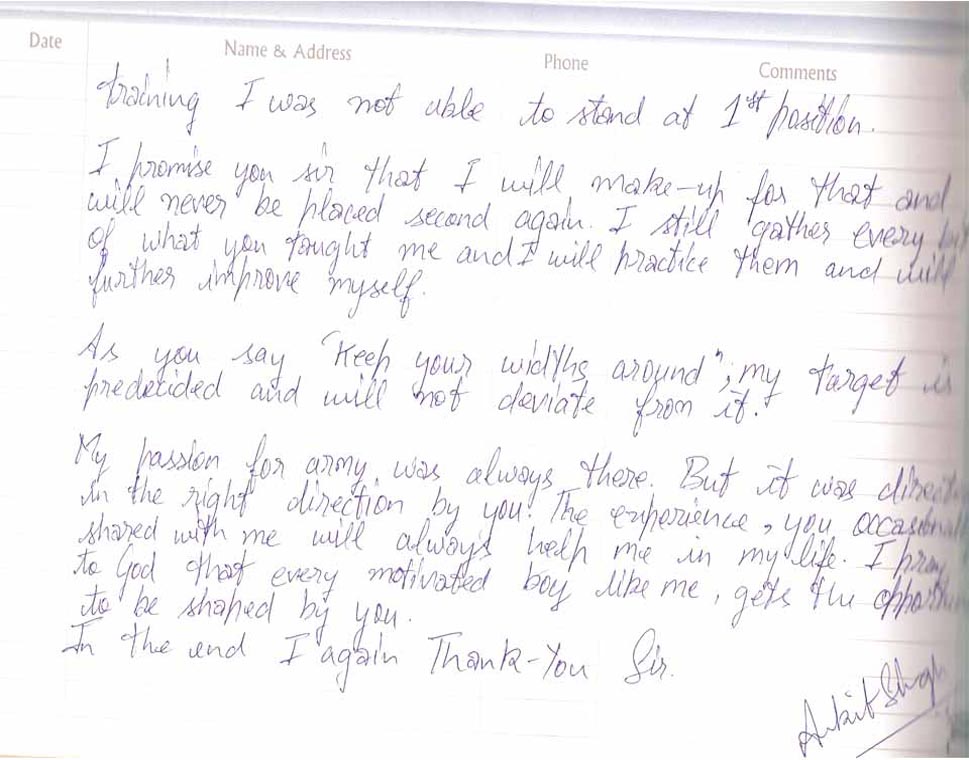 Date Name & Address Phone Comments
training I was not able to stand at 1st position.
I promise you sir that I will make-up for that and
will never be placed second again. I still gather every
of what you taught me and I will practice them and will
further improve myself.
As you say "Keep your widths around"; my target is
predecided and will not deviate from it.
My passion for army was always there. But it was direct
in the right direction by you. The experience, you occasional
shared with me will always help me in my life. I pray
to God that every motivated boy like me, gets the opport
to be shaped by you.
In the end I again Thank-You Sir.
Ankit Singh